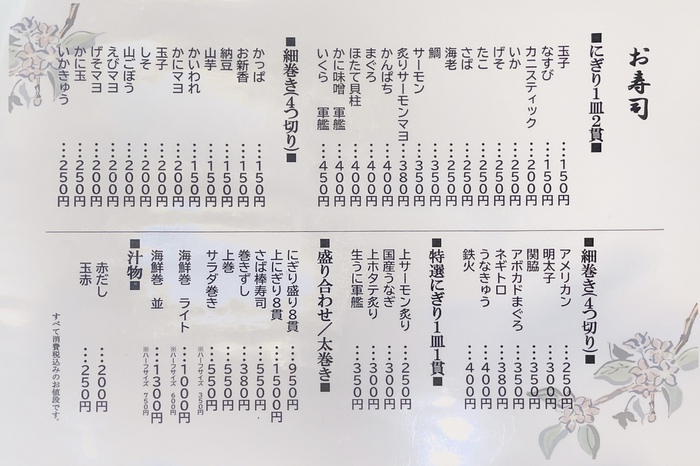 お寿司
■にぎり1皿2貫■
玉子…150円
なすび…150円
カニスティック…200円
いか…250円
げそ…250円
たこ…250円
さば…250円
海老…250円
鯛…350円
サーモン…350円
炙りサーモンマヨ…380円
かんぱち…400円
まぐろ…400円
ほたて貝柱…400円
かに味噌 軍艦…400円
いくら 軍艦…450円
■細巻き(4つ切り)■
かっぱ…150円
お新香…150円
納豆…150円
山芋…150円
かいわれ…150円
かにマヨ…200円
玉子…200円
しそ…200円
山ごぼう…200円
えびマヨ…200円
げそマヨ…200円
かに玉…250円
いかきゅう…250円
■細巻き(4つ切り)■
アメリカン…250円
明太子…300円
関脇…350円
アボカドまぐろ…350円
ネギトロ…380円
うなきゅう…400円
鉄火…400円
■特選にぎり1皿1貫■
上サーモン炙り…250円
国産うなぎ…300円
上ホタテ炙り…300円
生うに軍艦…350円
■盛り合わせ/太巻き■
にぎり盛り8貫…950円
上にぎり8貫…1500円
さば棒寿司…550円
巻きずし…380円
上巻…550円
サラダ巻き…550円
※ハーフサイズ 350円
海鮮巻 ライト…1000円
※ハーフサイズ 600円
海鮮巻 並…1300円
※ハーフサイズ 750円
■汁物■
赤だし…200円
玉赤…250円
すべて消費税込みのお値段です。